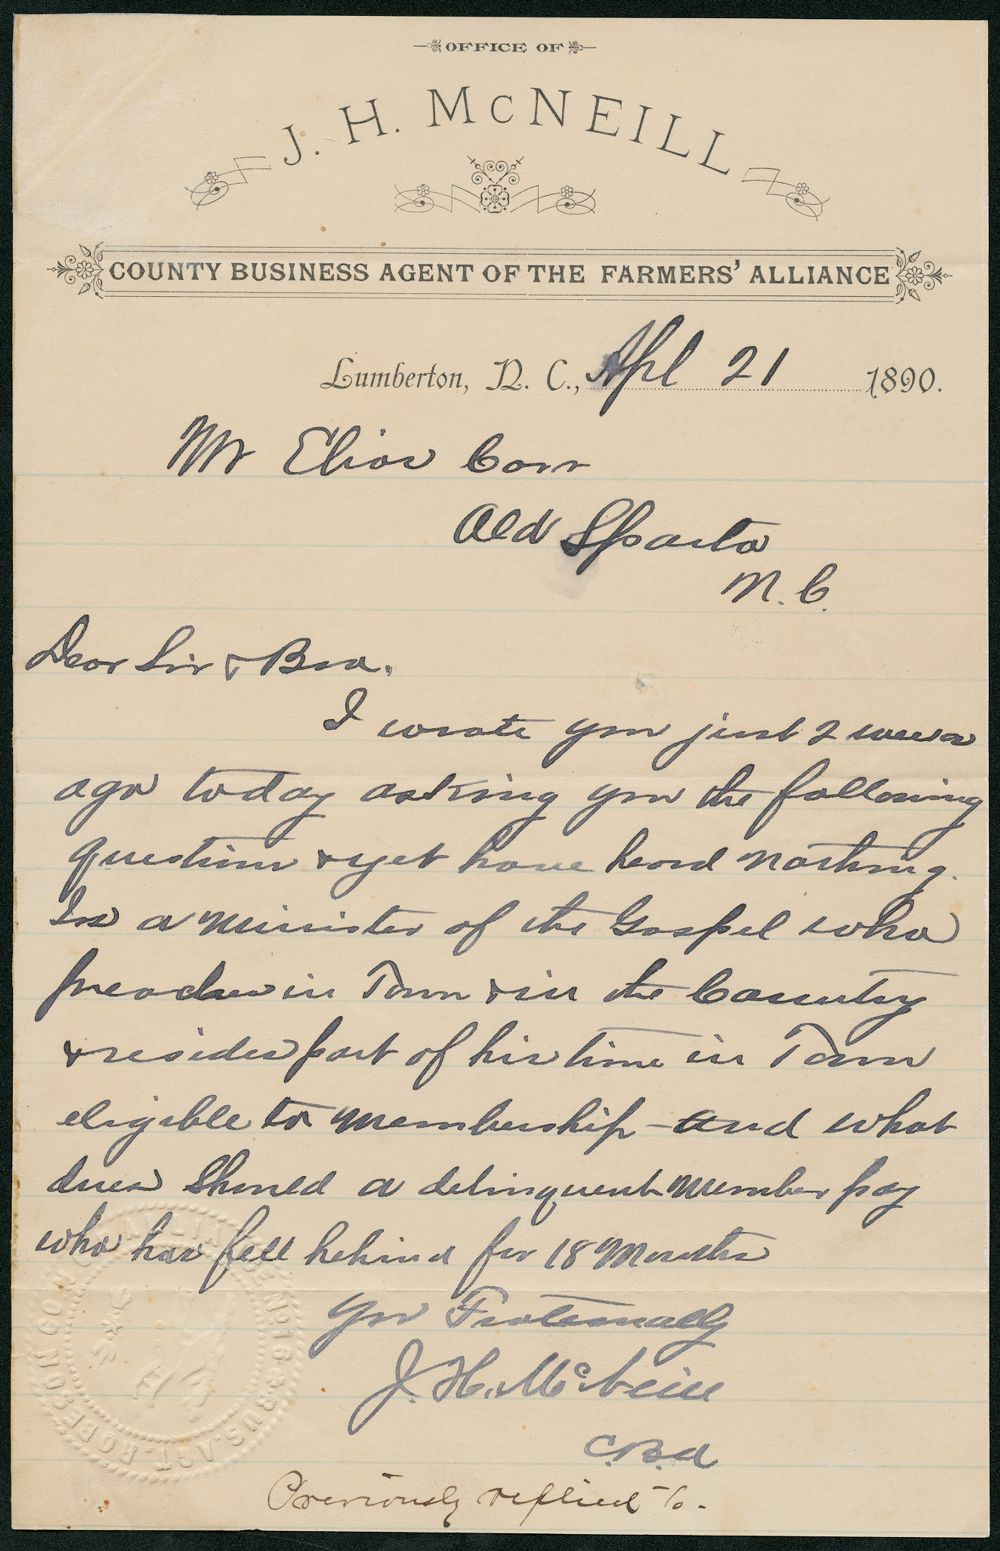 OFFICE OF
J. H. McNEILL
COUNTY BUSINESS AGENT OF THE FARMERS' ALLIANCE
Lumberton, N. C., Apl 21 1890.
Mr Elias Carr
Old Sparta
N. C.
Dear Sir & Bro.
I wrote you just 2 weeks
ago today asking you the following
question & yet have heard nothing.
Is a Minister of the Gospel who
preaches in Town & in the Country
& resides part of his time in Town
eligible to membership - and what
dues should a delinquent member pay
who has fell behind for 18 Months
Yrs Fraternally
J. H. McNeill
C.B.A
Previously replied to.